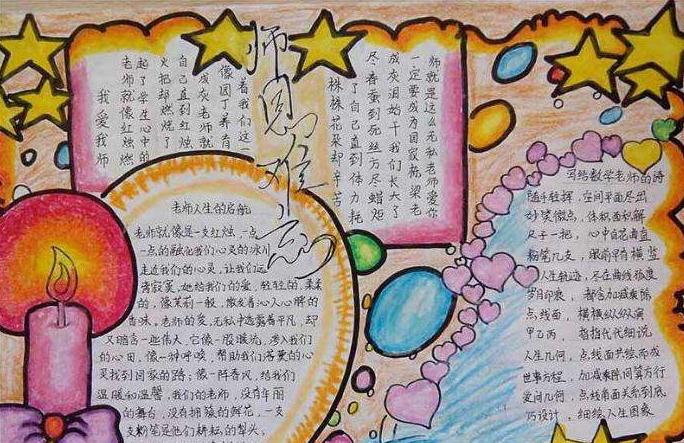 师恩难忘
我爱我师
老师就像红烛燃
起了学生心中的
火把却燃烧了
自己直到红烛
成灰老师就
像园丁养育
着我们这一
株株花朵却辛苦
了自己直到体力托
尽春蚕到死丝方尽蜡炬
成灰泪始干我们长大了
一定要成为国家栋梁老
师就是这么无私老师爱你
老师人生的启航
老师就像是一支红烛,一点
一点的融化我们心灵的冰川
走进我们的心灵,让我们远
离寂寞,她给我们的爱,轻轻的,柔柔
的,像茉莉一般,散发着沁人心脾的
香味,老师的爱,无私中透露着平凡,却
又暗含一些伟大,它像一股暖流,渗入我们
的心田,像一种呼唤,帮助我们落寞的心
灵找到回家的路;像一阵春风,给我们
温暖和温馨,我们的老师,没有华丽
的舞台,没有簇簇的鲜花,一支
支粉笔是他们耕耘的犁头,
写给数学老师的诗
随手轻挥,空间平面尽出
妙笔微点,体积面积解
尺子一把,心中自花曲直
粉笔几支,眼前早有横竖
人生轨迹,尽在曲线弧度
岁月印痕,都含加减乘除
点线面,横横纵纵纵演
甲乙丙,指指代代细说
人生几何,点线面共绘而成
世事方程,加减乘除同算方行
爱问几何,点线角面关系到底
巧设计,细绘人生图象